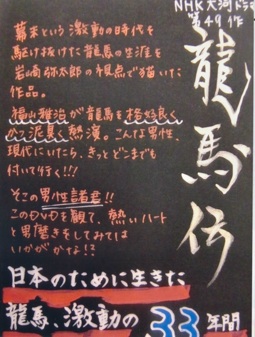 NHK大河ドラマ
第49作
龍馬伝
幕末という激動の時代を
駆け抜けた龍馬の生涯を
岩崎弥太郎の視点で描いた
作品。
福山雅治が龍馬を格好良く
かつ泥臭く熱演。こんな男性、
現代にいたら、きっとどこまでも
付いて行く!!!
そこの男性諸君!!
このDVDを観て、熱いハート
と男磨きをしてみては
いかがかな!?
日本のために生きた
龍馬、激動の33年間